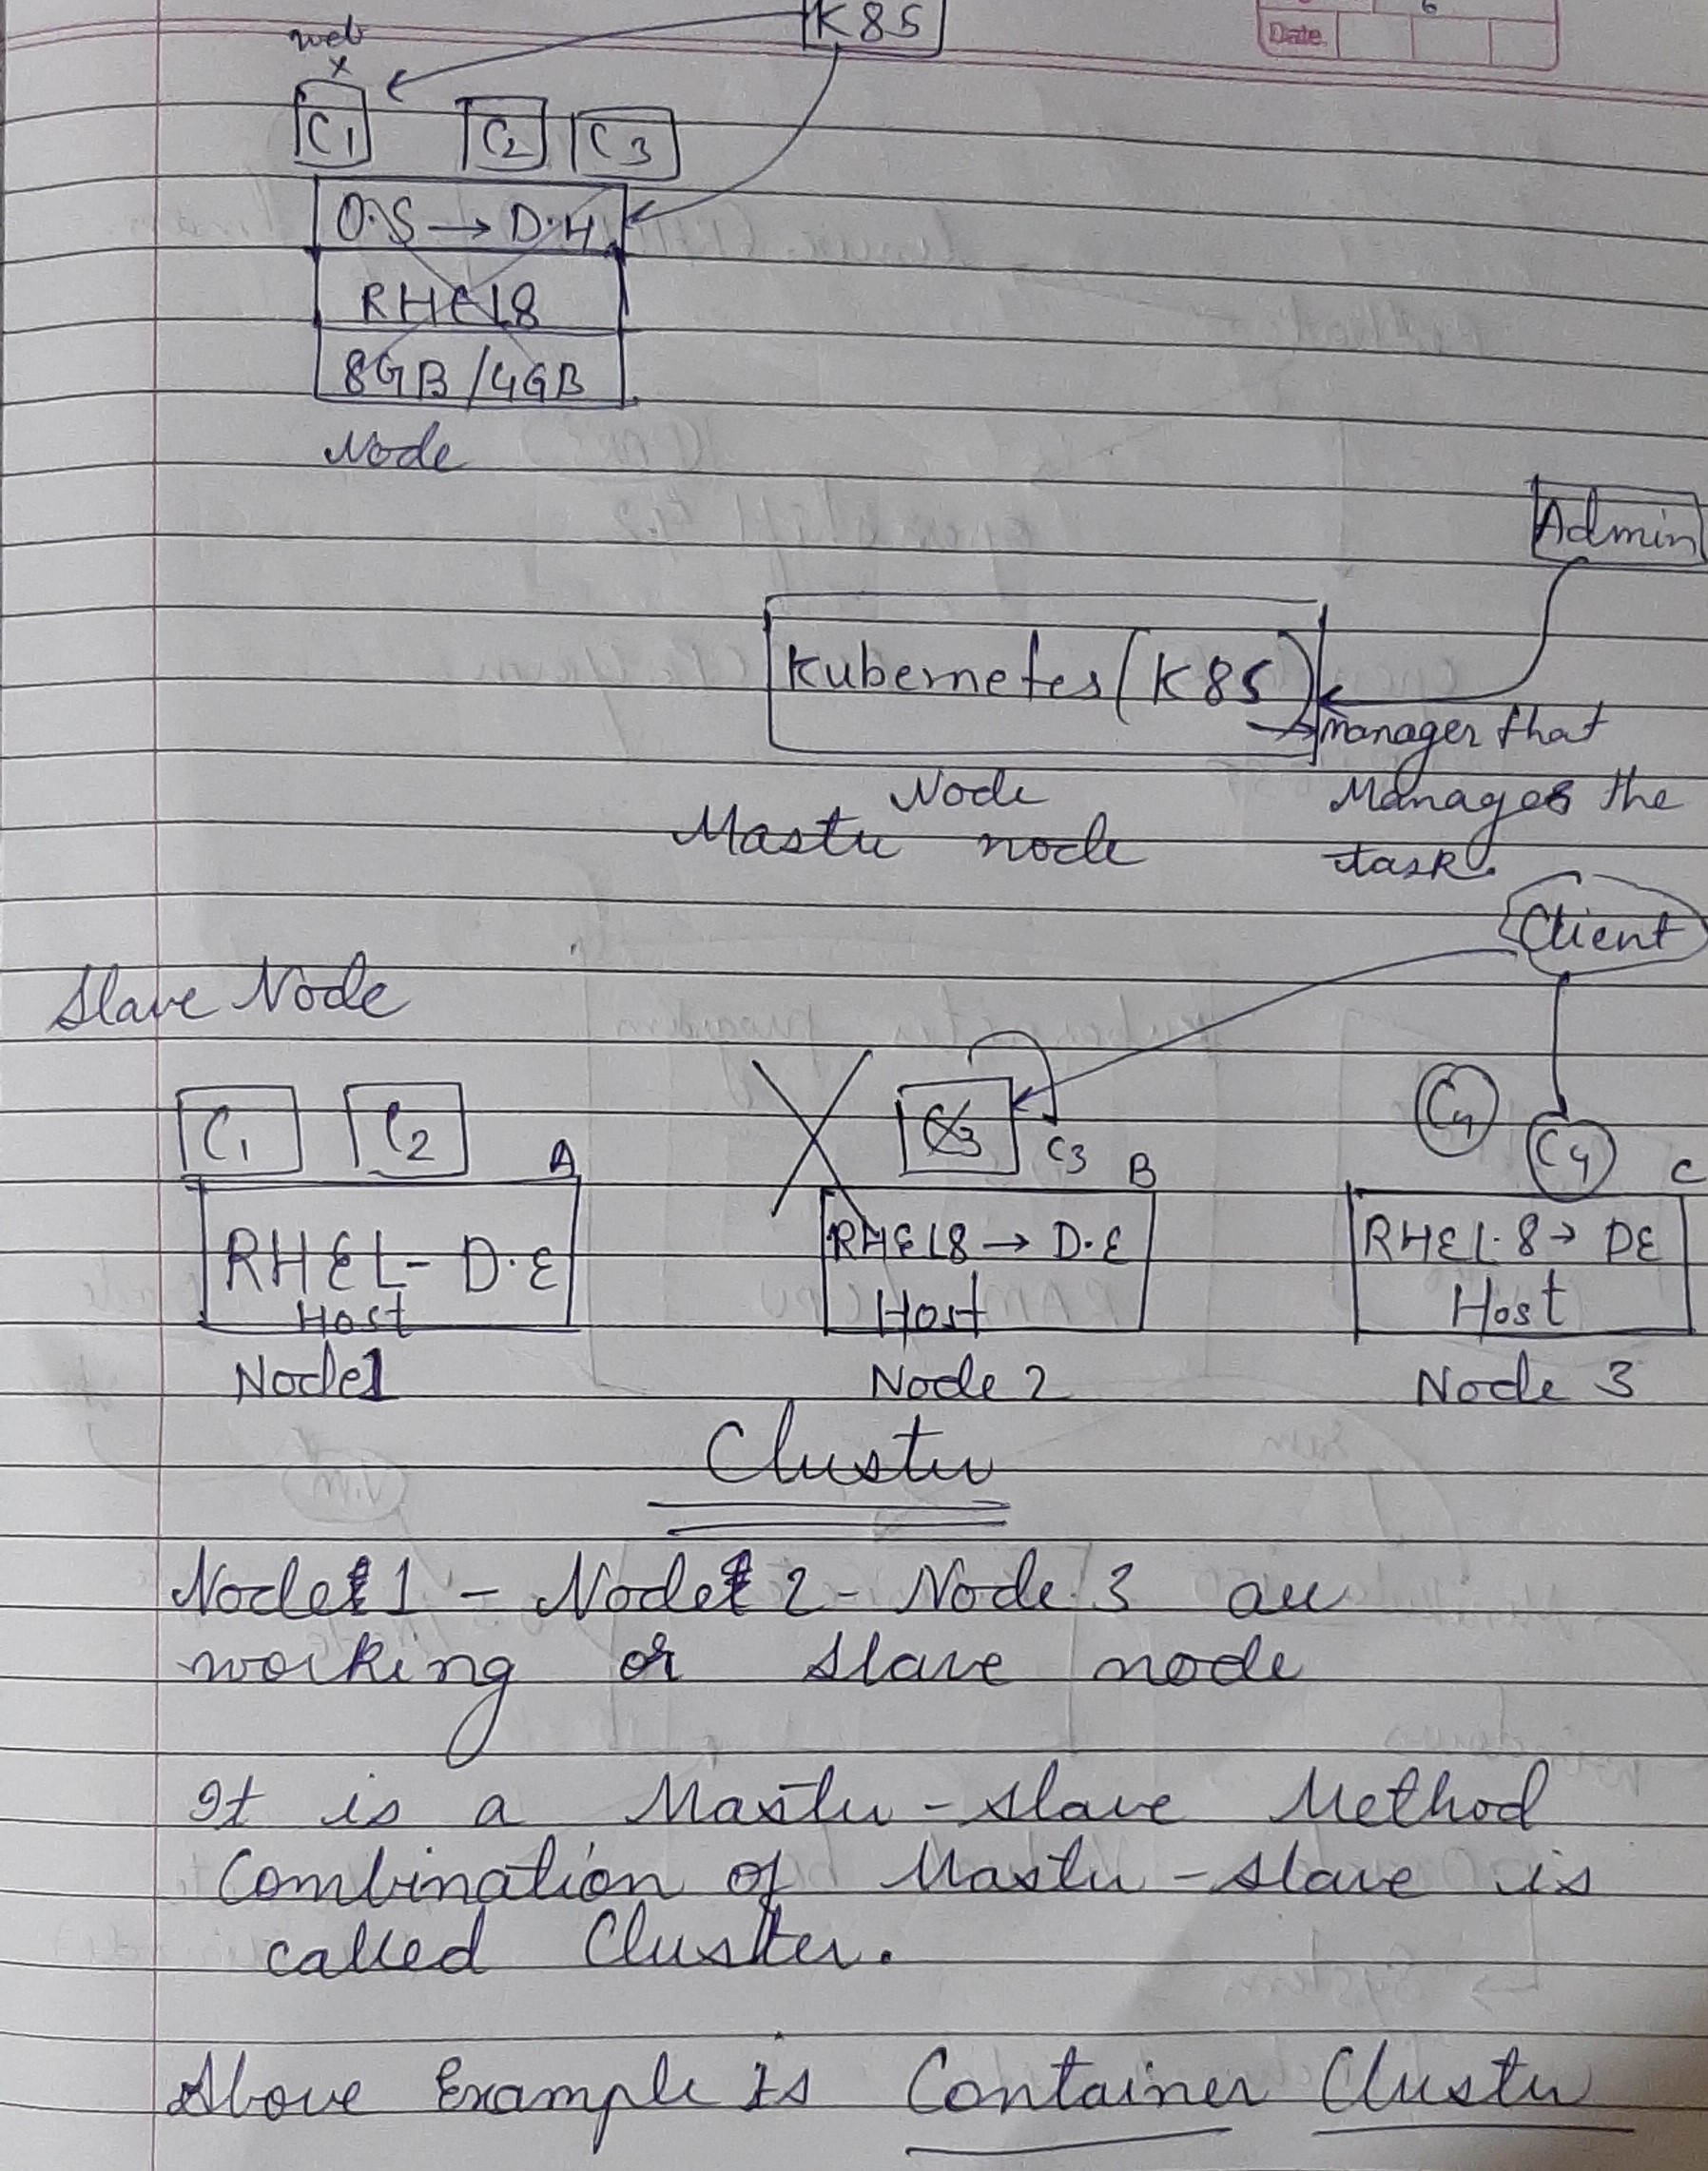 K8S
6
Date
web
x
C1
C2
C3
O.S → D.H
RHEL8
8GB/4GB
Node
Admin
Kubernetes (K8S)
→ manager that
Manages the
task.
Node
Master node
Client
Slave Node
C1
C2
A
C3
C3
B
C4
C4
C
RHEL- D.E
Host
Node1
RHEL8 → D.E
Host
Node 2
RHEL.8 → DE
Host
Node 3
Cluster
Node 1 - Node 2 - Node 3 are
working or slave node
It is a Master-slave Method
Combination of Master-slave is
called Cluster.
Above Example is Container Cluster